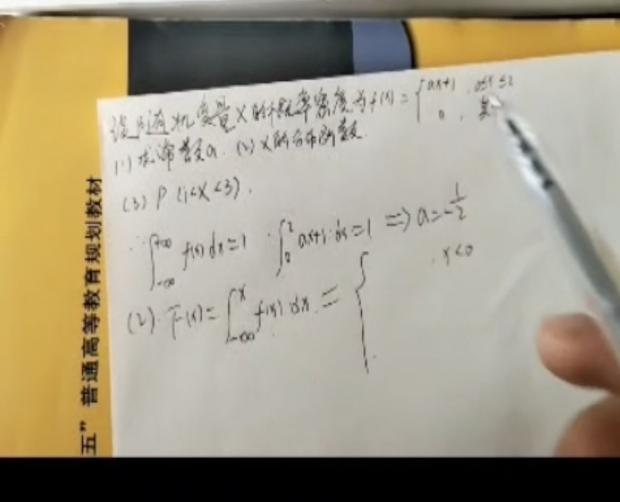 设随机变量X的概率密度为f(x)={ax+1, 0≤x≤2
0, 其
(1) 求常数a. (2) X的分布函数.
(3) P(1<X<3).
∵∫_{-∞}^{+∞} f(x)dx=1 ∫_0^2 ax+1·dx=1 ⇒ a=-1/2
(2). F(x)=∫_{-∞}^{x} f(x)·dx.={ , x<0
五”普通高等教育规划教材